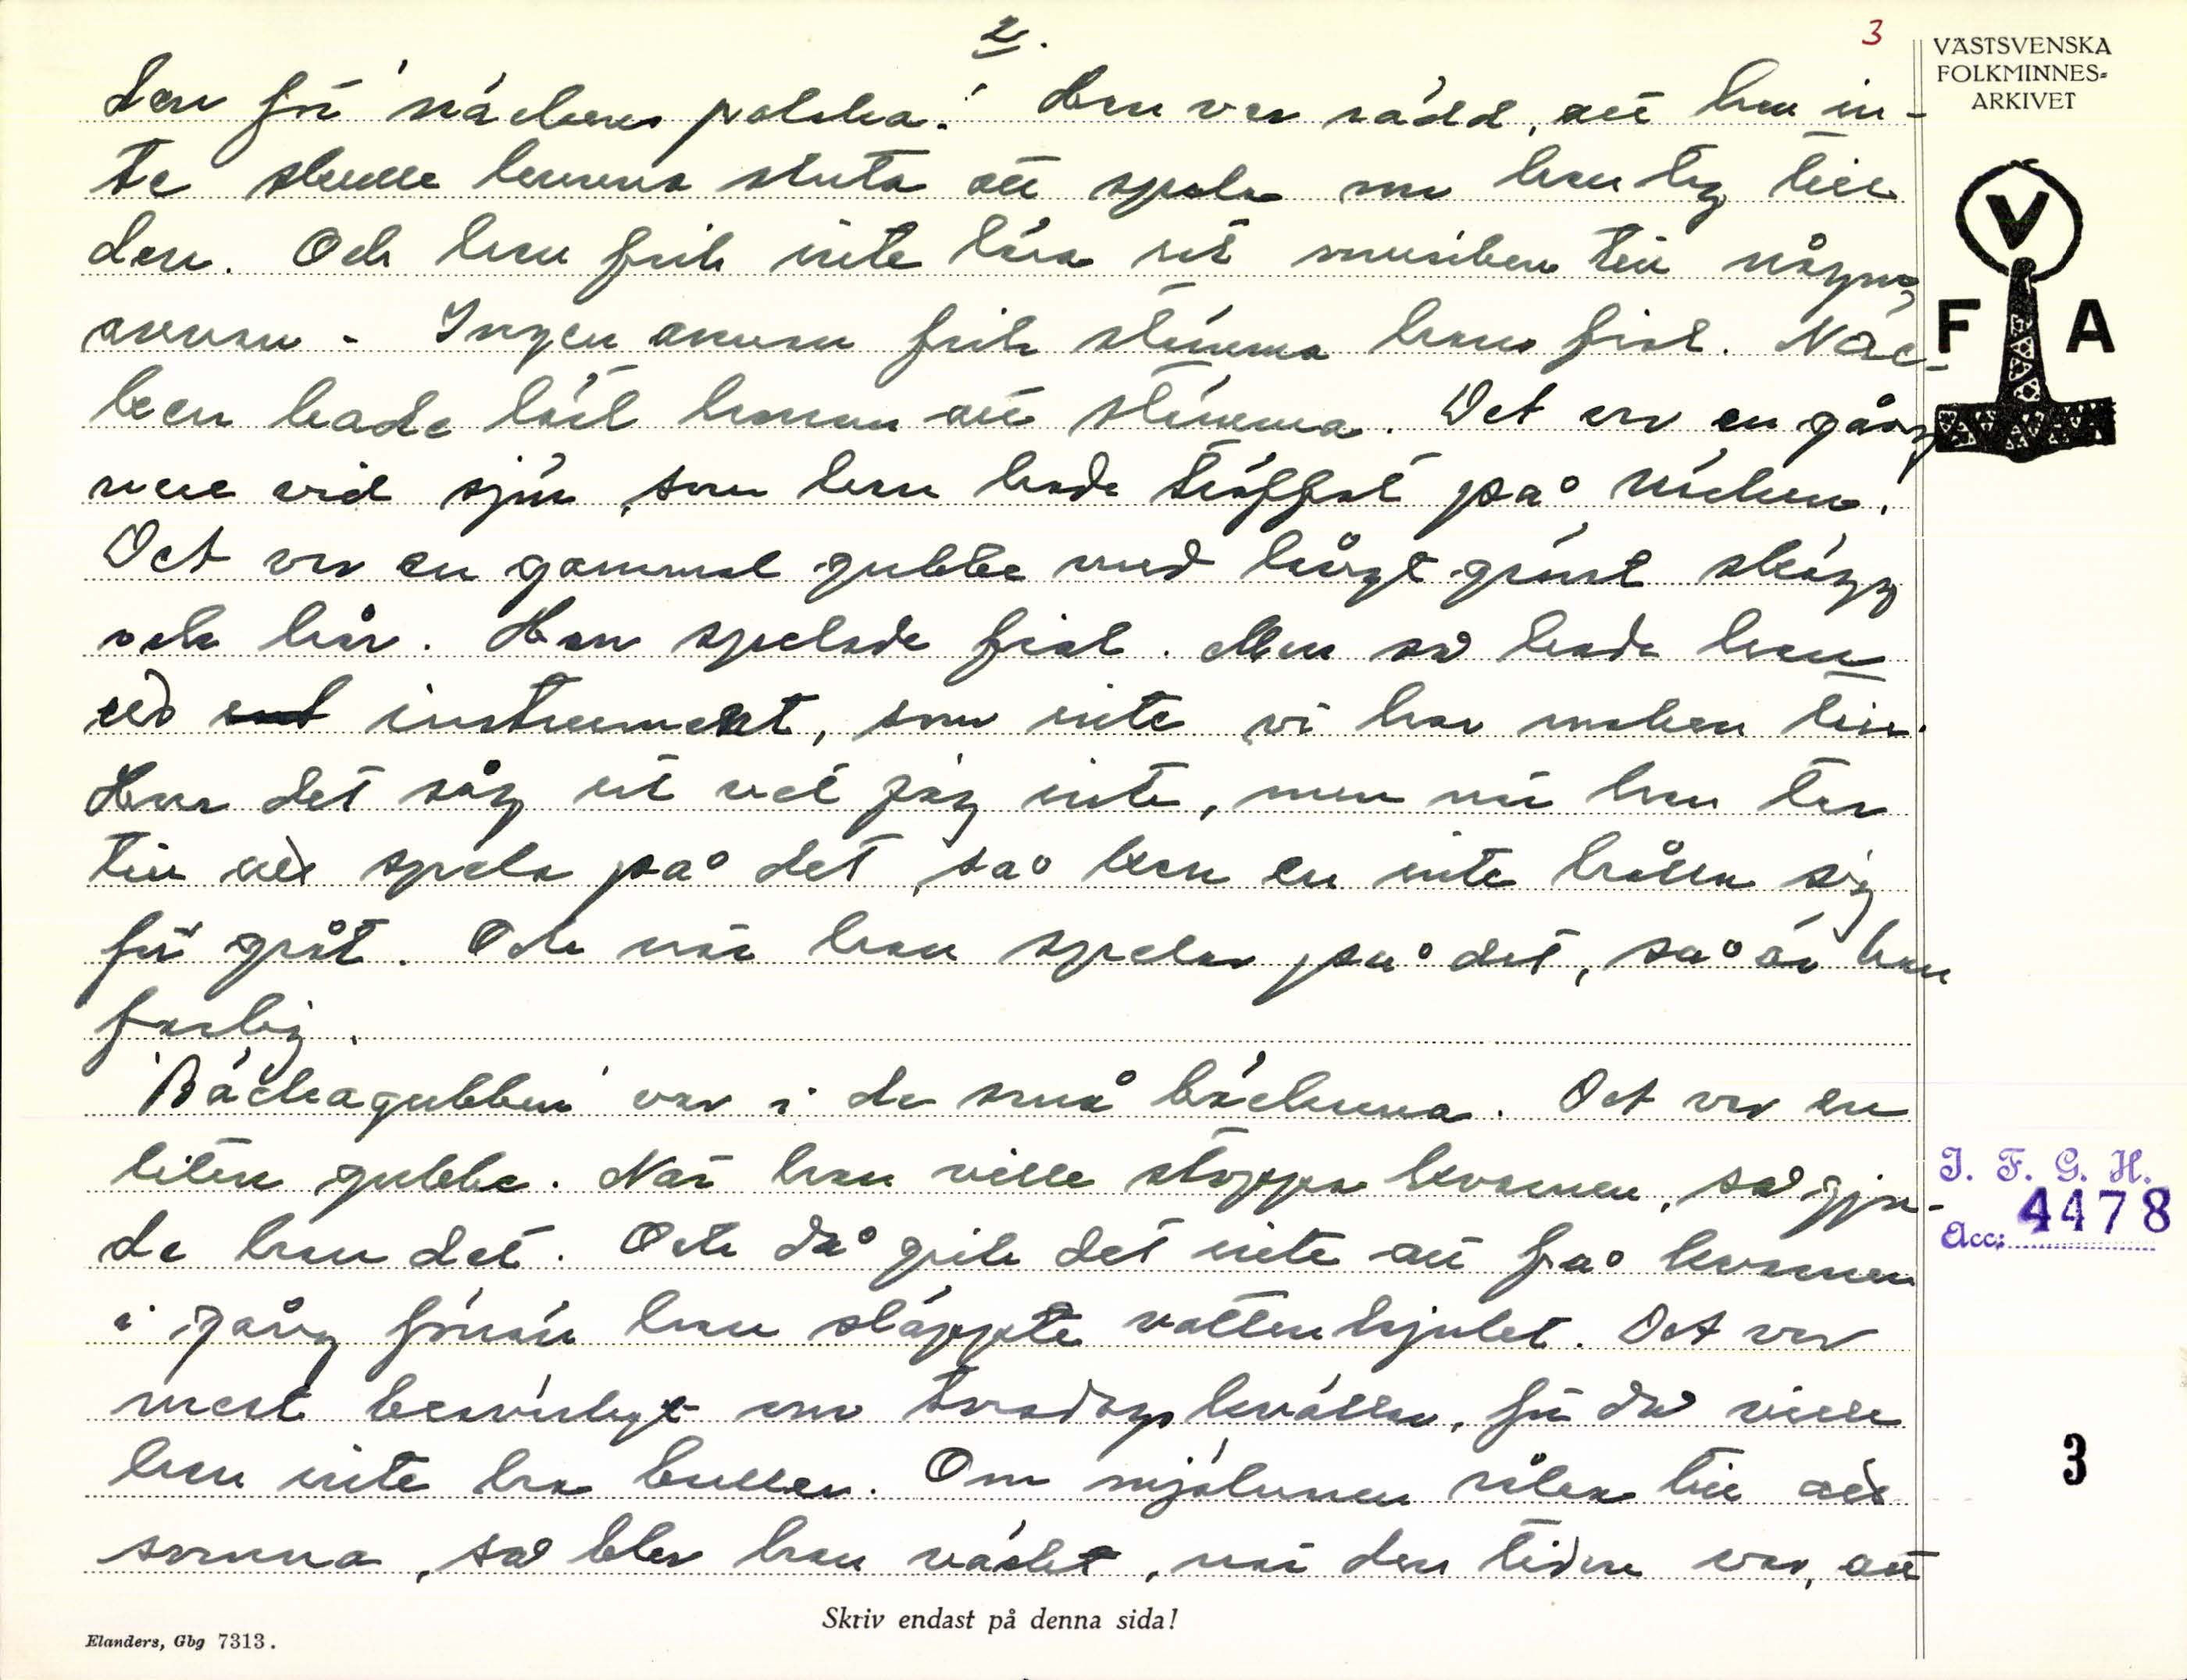 2.
3
VÄSTSVENSKA
FOLKMINNES-
ARKIVET
den för näckens polska. Han var rädd, att han in-
te skulle kunna sluta att spela om han tog till
den. Och han fick inte lära ut musiken till någon
annan - Ingen annan fick stämma hans fiol. Näc-
ken hade lärt honom att stämma. Det var en gång
nere vid sjön, som han hade träffat på näcken.
Det var en gammal gubbe med långt grönt skägg
och hår. Han spelade fiol. Men så hade han
ed instrument, som inte vi har maken till.
Hur det såg ut vet jag inte, men när han tar
till att spela på det, så kan en inte hålla sig
för gråt. Och när han spelar på det, så är han
farlig.
'Bäckagubben' var i de små bäckarna. Det var en
liten gubbe. När han ville stoppa kvarnen, så gjor-
de han det. Och då gick det inte att få kvarnen
i gång förrän han släppte vattenhjulet. Det var
mest besvärligt om torsdagskvällen, för då ville
han inte ha buller. Om mjölnaren råka till att
somna, så blev han väckt, när den tiden var, att
V
F A
I. F. G. H.
Acc: 4478
3
Skriv endast på denna sida!
Elanders, Gbg 7313.